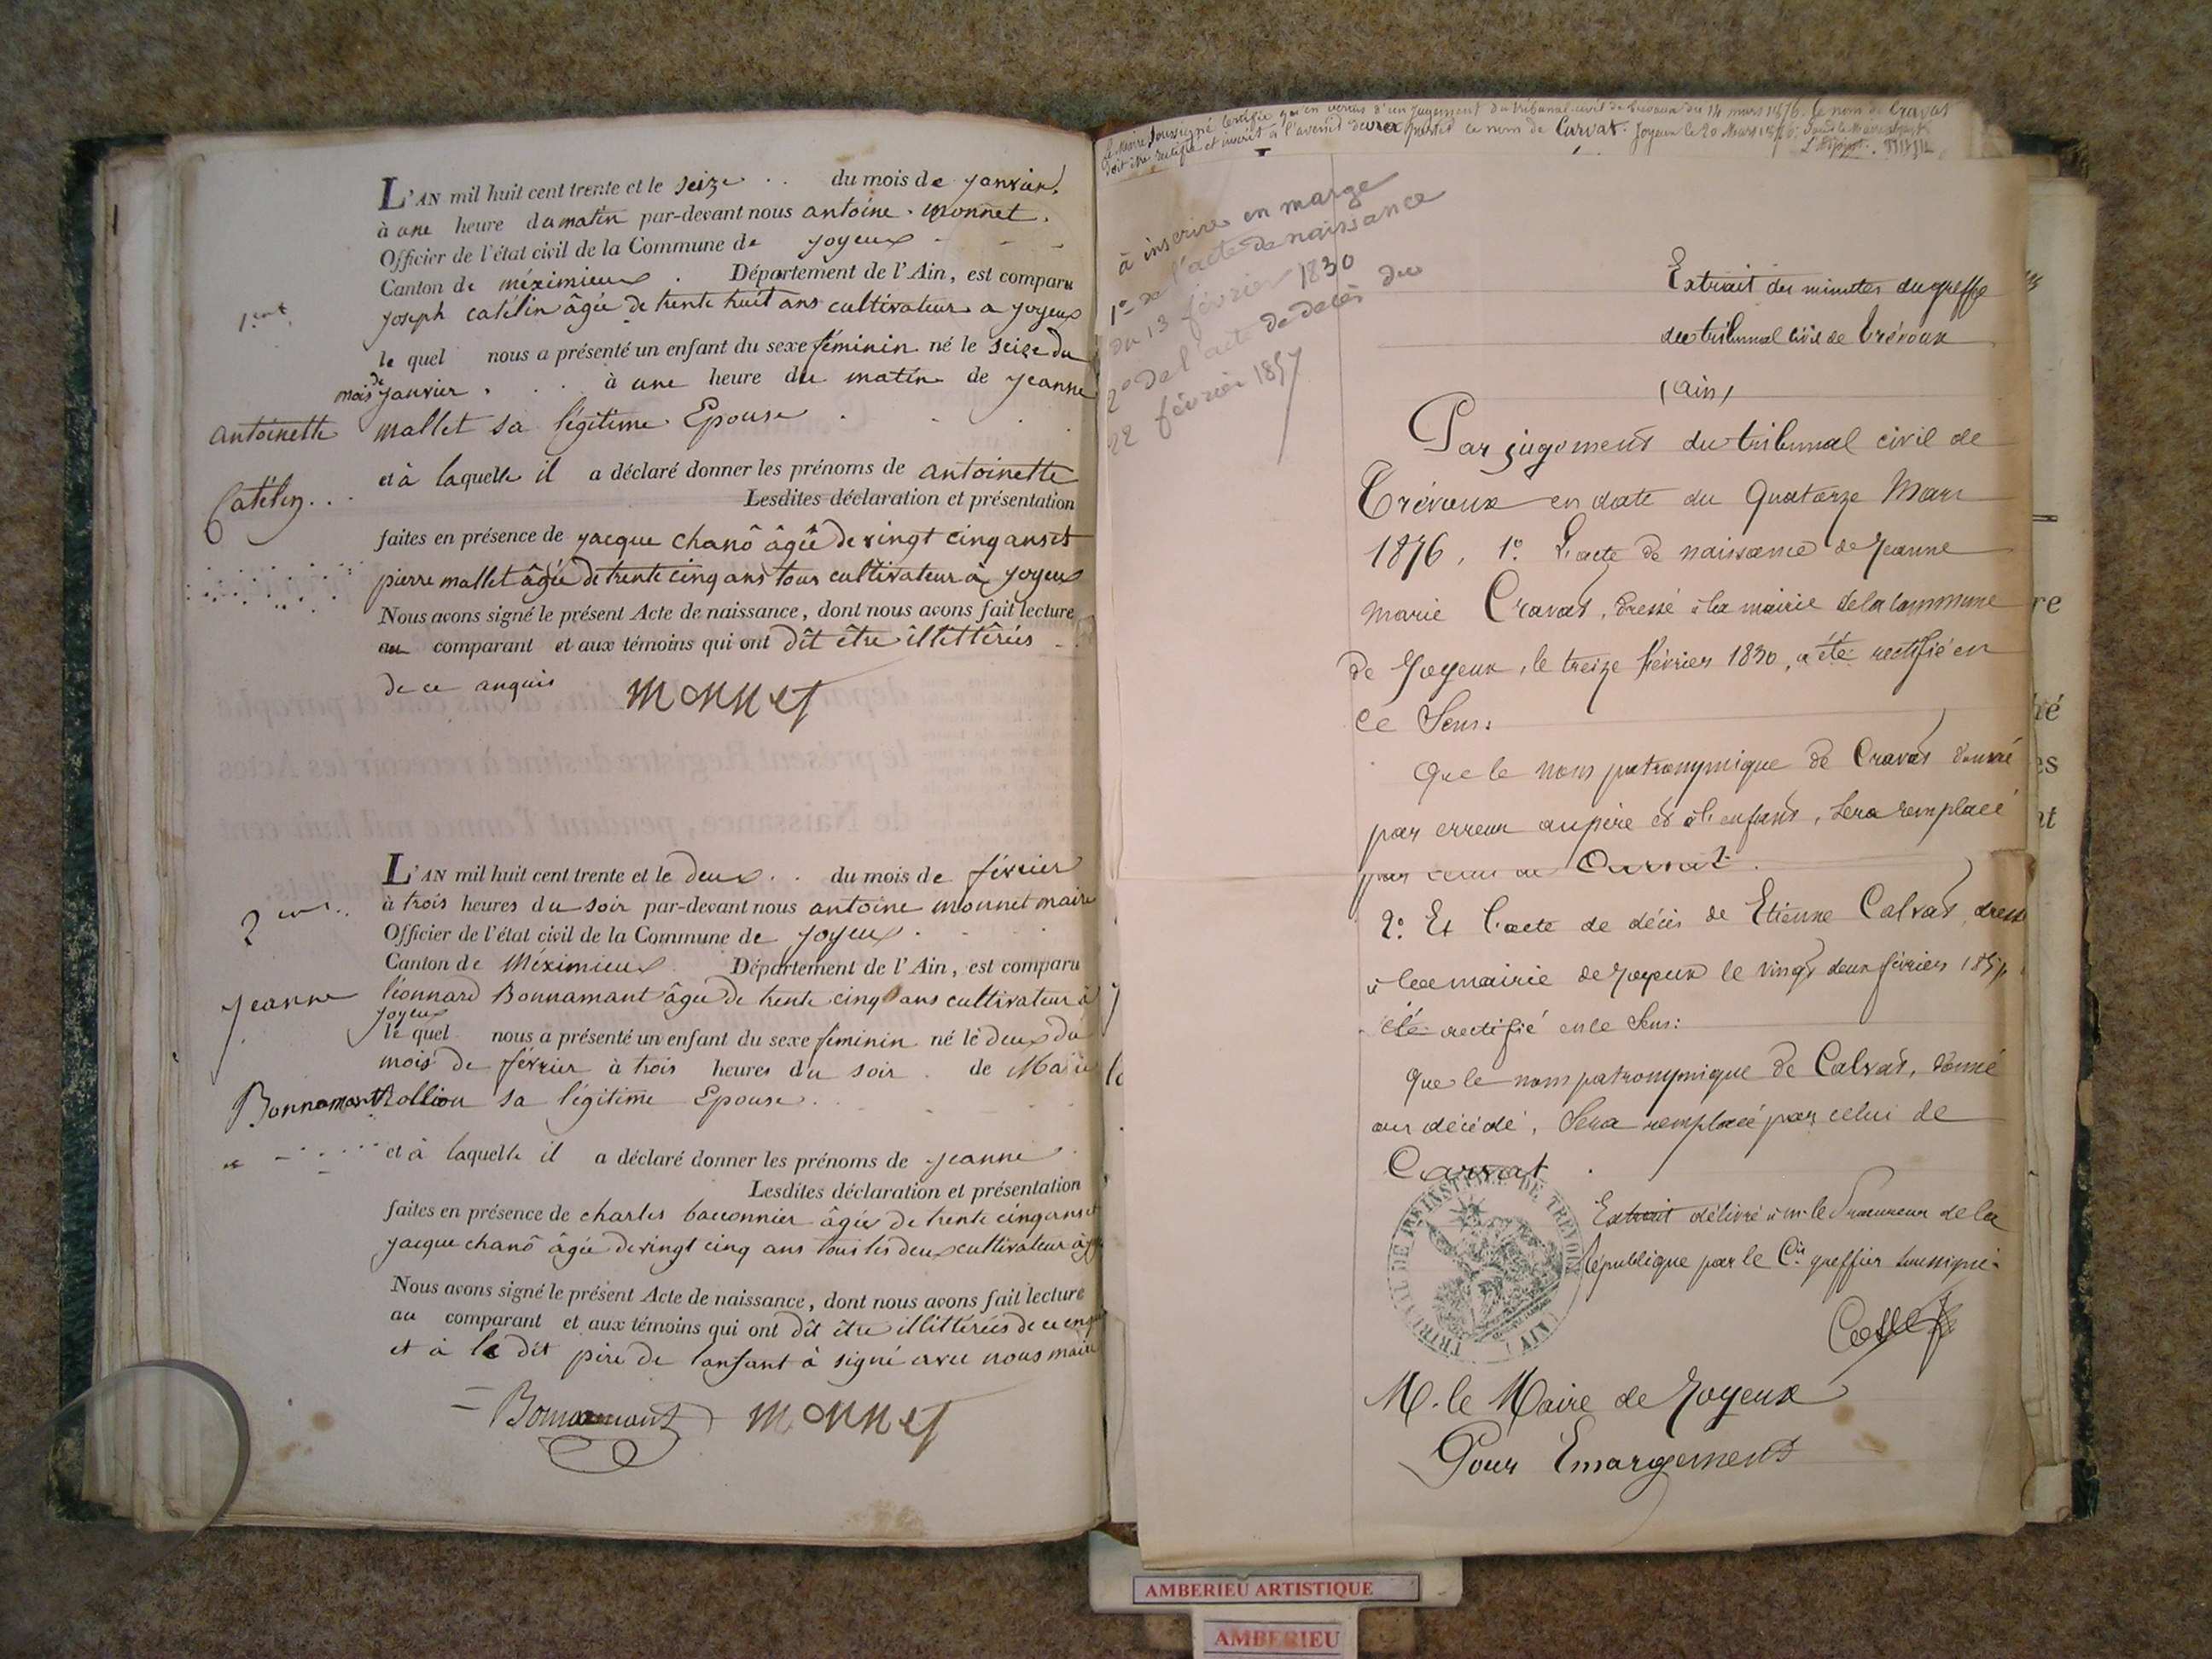 L'AN mil huit cent trente et le seize . . du mois de janvier.
à une heure du matin par-devant nous antoine monnet.
Officier de l'état civil de la Commune de joyeux
Canton de méximieux . Département de l'Ain, est comparu
joseph catélin âgée de trente huit ans cultivateur a joyeux
le quel nous a présenté un enfant du sexe féminin né le seize du
mois de janvier . . à une heure du matin de jeanne
mallet sa légitime Epouse
et à laquelle il a déclaré donner les prénoms de antoinette
Lesdites déclaration et présentation
faites en présence de jacque chanô âgée de vingt cinq ans et
pierre mallet âgée de trente cinq ans tous cultivateur à joyeux
Nous avons signé le présent Acte de naissance, dont nous avons fait lecture
au comparant et aux témoins qui ont dît être illettérées
de ce anquis
monnet
antoinette
Catélin . .
L'AN mil huit cent trente et le deux . . du mois de février
à trois heures du soir par-devant nous antoine monnet maire
Officier de l'état civil de la Commune de joyeux
Canton de Méximieux Département de l'Ain, est comparu
léonnard Bonnamant âgée de trente cinq ans cultivateur à
joyeux
le quel nous a présenté un enfant du sexe féminin né le deux du
mois de février à trois heures du soir . de Marie
Rollion sa légitime Epouse
et à laquelle il a déclaré donner les prénoms de jeanne
Lesdites déclaration et présentation
faites en présence de charles baconnier âgée de trente cinq ans et
jacque chanô âgée de vingt cinq ans tous les deux cultivateur à
Nous avons signé le présent Acte de naissance, dont nous avons fait lecture
au comparant et aux témoins qui ont dît être illittérées de ce
et à le dit père de lanfant à signé avec nous maire
Bonnamant monnet
jeanne
Bonnamant
Le Maire soussigné certifie qu'en vertu d'un jugement du tribunal civil de Trévoux du 14 mars 1876, le nom de Cravat
doit être rectifié et inscrit à l'avenir sous le nom de Curvat. Joyeux le 20 Mars 1876
L'adjoint
à inscrire en marge
1° de l'acte de naissance
du 13 février 1830
2° de l'acte de décès du
22 février 1857
Extrait des minutes du greffe
du tribunal civil de Trévoux
(Ain)
Par jugement du tribunal civil de
Trévoux en date du Quatorze Mars
1876, 1° L'acte de naissance de Jeanne
Marie Cravat, dressé à la mairie de la commune
de Joyeux, le treize février 1830, a été rectifié en
ce Sens:
Que le nom patronymique de Cravat donné
par erreur au père et à l'enfant, sera remplacé
par celui de Curvat.
2° Et l'acte de décès de Etienne Calvat, dressé
à la mairie de Joyeux le vingt deux février 1857,
été rectifié en ce Sens:
Que le nom patronymique de Calvat, donné
au décédé, Sera remplacé par celui de
Curvat.
Extrait délivré à m. le Procureur de la
République par le Cis greffier soussigné.
M. le Maire de Joyeux
Pour Emargement
TRIBUNAL DE 1re INSTANCE DE TREVOUX
(AIN)
AMBERIEU ARTISTIQUE
AMBERIEU